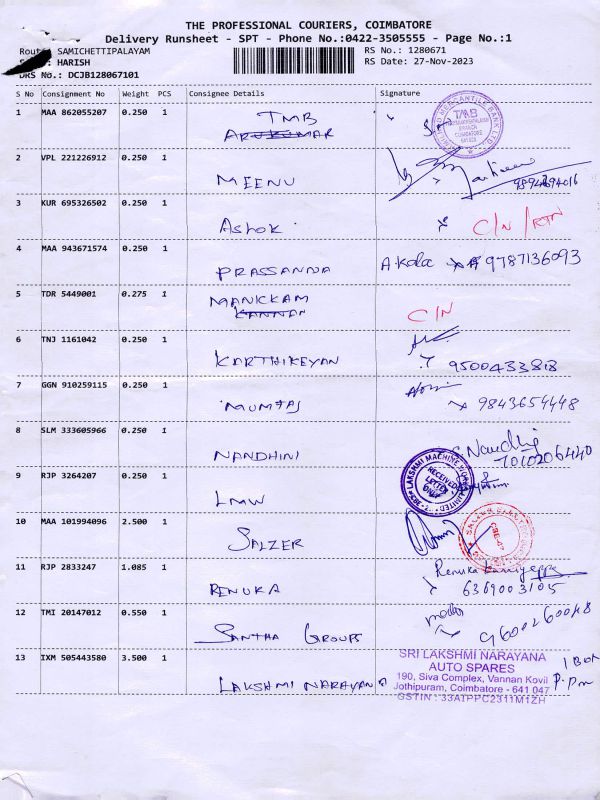 THE PROFESSIONAL COURIERS, COIMBATORE
Delivery Runsheet - SPT - Phone No.:0422-3505555 - Page No.:1
Route: SAMICHETTIPALAYAM
RS No.: 1280671
HARISH
RS Date: 27-Nov-2023
DRS No.: DCJB128067101
S No Consignment No Weight PCS Consignee Details Signature
1 MAA 862055207 0.250 1 TMB
ARUKUMAR
TMB
COIMBATORE
2 VPL 221226912 0.250 1 MEENU
3 KUR 695326502 0.250 1 ASHOK C/N / RTN
4 MAA 943671574 0.250 1 PRASSANNA A. Kala 9787136093
5 TDR 5449001 0.275 1 MANICKAM
KANNAN C/N
6 TNJ 1161042 0.250 1 KARTHIKEYAN 9500433818
7 GGN 910259115 0.250 1 MUMTAJ 9843654448
8 SLM 333605966 0.250 1 NANDHINI Nandhi
7010206440
9 RJP 3264207 0.250 1 LMW
LAKSHMI MACHINE WORKS LIMITED
RECEIVED
LETTER
ONLY
10 MAA 101994096 2.500 1 SALZER
11 RJP 2833247 1.085 1 RENUKA Renuka
6369003105
12 TMI 20147012 0.550 1 SANTHA GROUPS 9600260048
13 IXM 505443580 3.500 1 LAKSHMI NARAYANA
SRI LAKSHMI NARAYANA
AUTO SPARES
190, Siva Complex, Vannan Kovil
Jothipuram, Coimbatore - 641 047
GSTIN : 33ATPPC2311M1ZH
1 Box